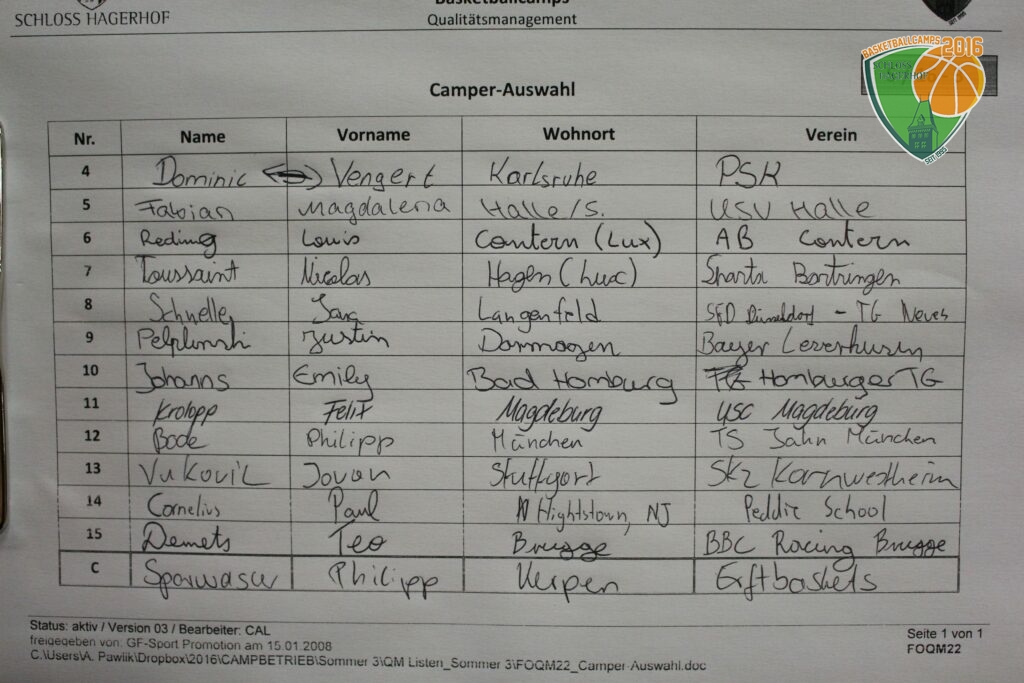 SCHLOSS HAGERHOF
Basketballcamps
Qualitätsmanagement
BASKETBALLCAMPS 2016
SCHLOSS HAGERHOF
SEIT 1995
Camper-Auswahl
Nr. Name Vorname Wohnort Verein
4 Dominic Vengert Karlsruhe PSK
5 Fabian Magdalena Halle/S. USV Halle
6 Reding Louis Contern (Lux) AB Contern
7 Toussaint Nicolas Hagen (Lux) Sparta Bertringen
8 Schnelle, Jana Langenfeld SFD Düsseldorf - TG Neuss
9 Pelplinski Justin Dormagen Bayer Leverkusen
10 Johanns Emily Bad Homburg Homburger TG
11 Krolopp Felix Magdeburg USC Magdeburg
12 Bode Philipp München TS Jahn München
13 Vukovic Jovan Stuttgart Skz Kornwestheim
14 Cornelius Paul Hightstown, NJ Peddie School
15 Demets Teo Brugge BBC Racing Brugge
C Sparwasser Philipp Kerpen Erftbaskets
Status: aktiv / Version 03 / Bearbeiter: CAL
freigegeben von: GF-Sport Promotion am 15.01.2008
C:\Users\A. Pawlik\Dropbox\2016\CAMPBETRIEB\Sommer 3\QM Listen_Sommer 3\FOQM22_Camper-Auswahl.doc
Seite 1 von 1
FOQM22